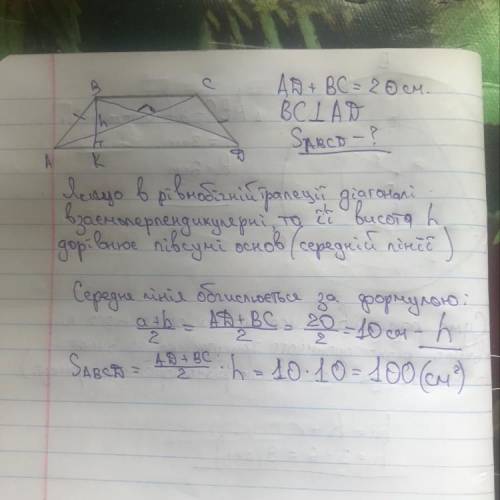 B C
h
A K D
AD + BC = 20 см.
BC⊥AD
SABCD - ?
Якщо в рівнобічній трапеції діагоналі
взаємоперпендикулярні, то її висота h
дорівнює півсумі основ (середній лінії)
Середня лінія обчислюється за формулою:
a+b/2 = AD+BC/2 = 20/2 = 10 см - h
SABCD = AD+BC/2 · h = 10 · 10 = 100 (см²)